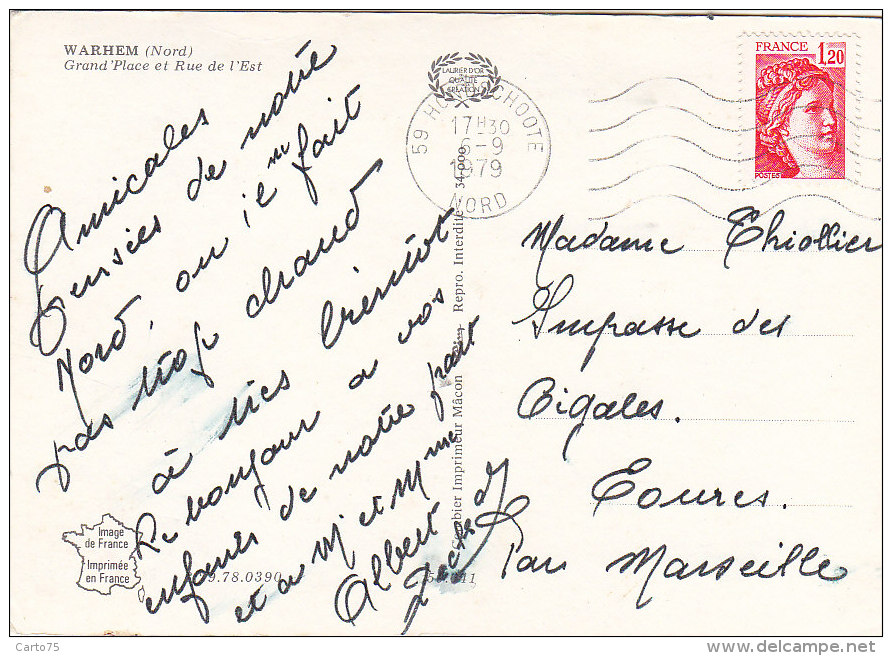 WARHEM (Nord)
Grand'Place et Rue de l'Est
Amicales
pensées de notre
Nord, ou il m fait
pas trop chaud
à très bientôt
Le bonjour a vos
enfants de notre part
et a Mr et Mme
Albert
LAURIER D'OR
QUALITÉ
CRÉATION
59 HONDSCHOOTE
17H30
6-9
1979
NORD
34.000
Combier Imprimeur Mâcon Repro. Interdite
FRANCE 1,20
POSTES
Madame Thiollier
Impasse des
Cigales.
Eoures.
Par Marseille
Image
de France
Imprimée
en France
9.78.0390
Carto75
www.delcampe.net